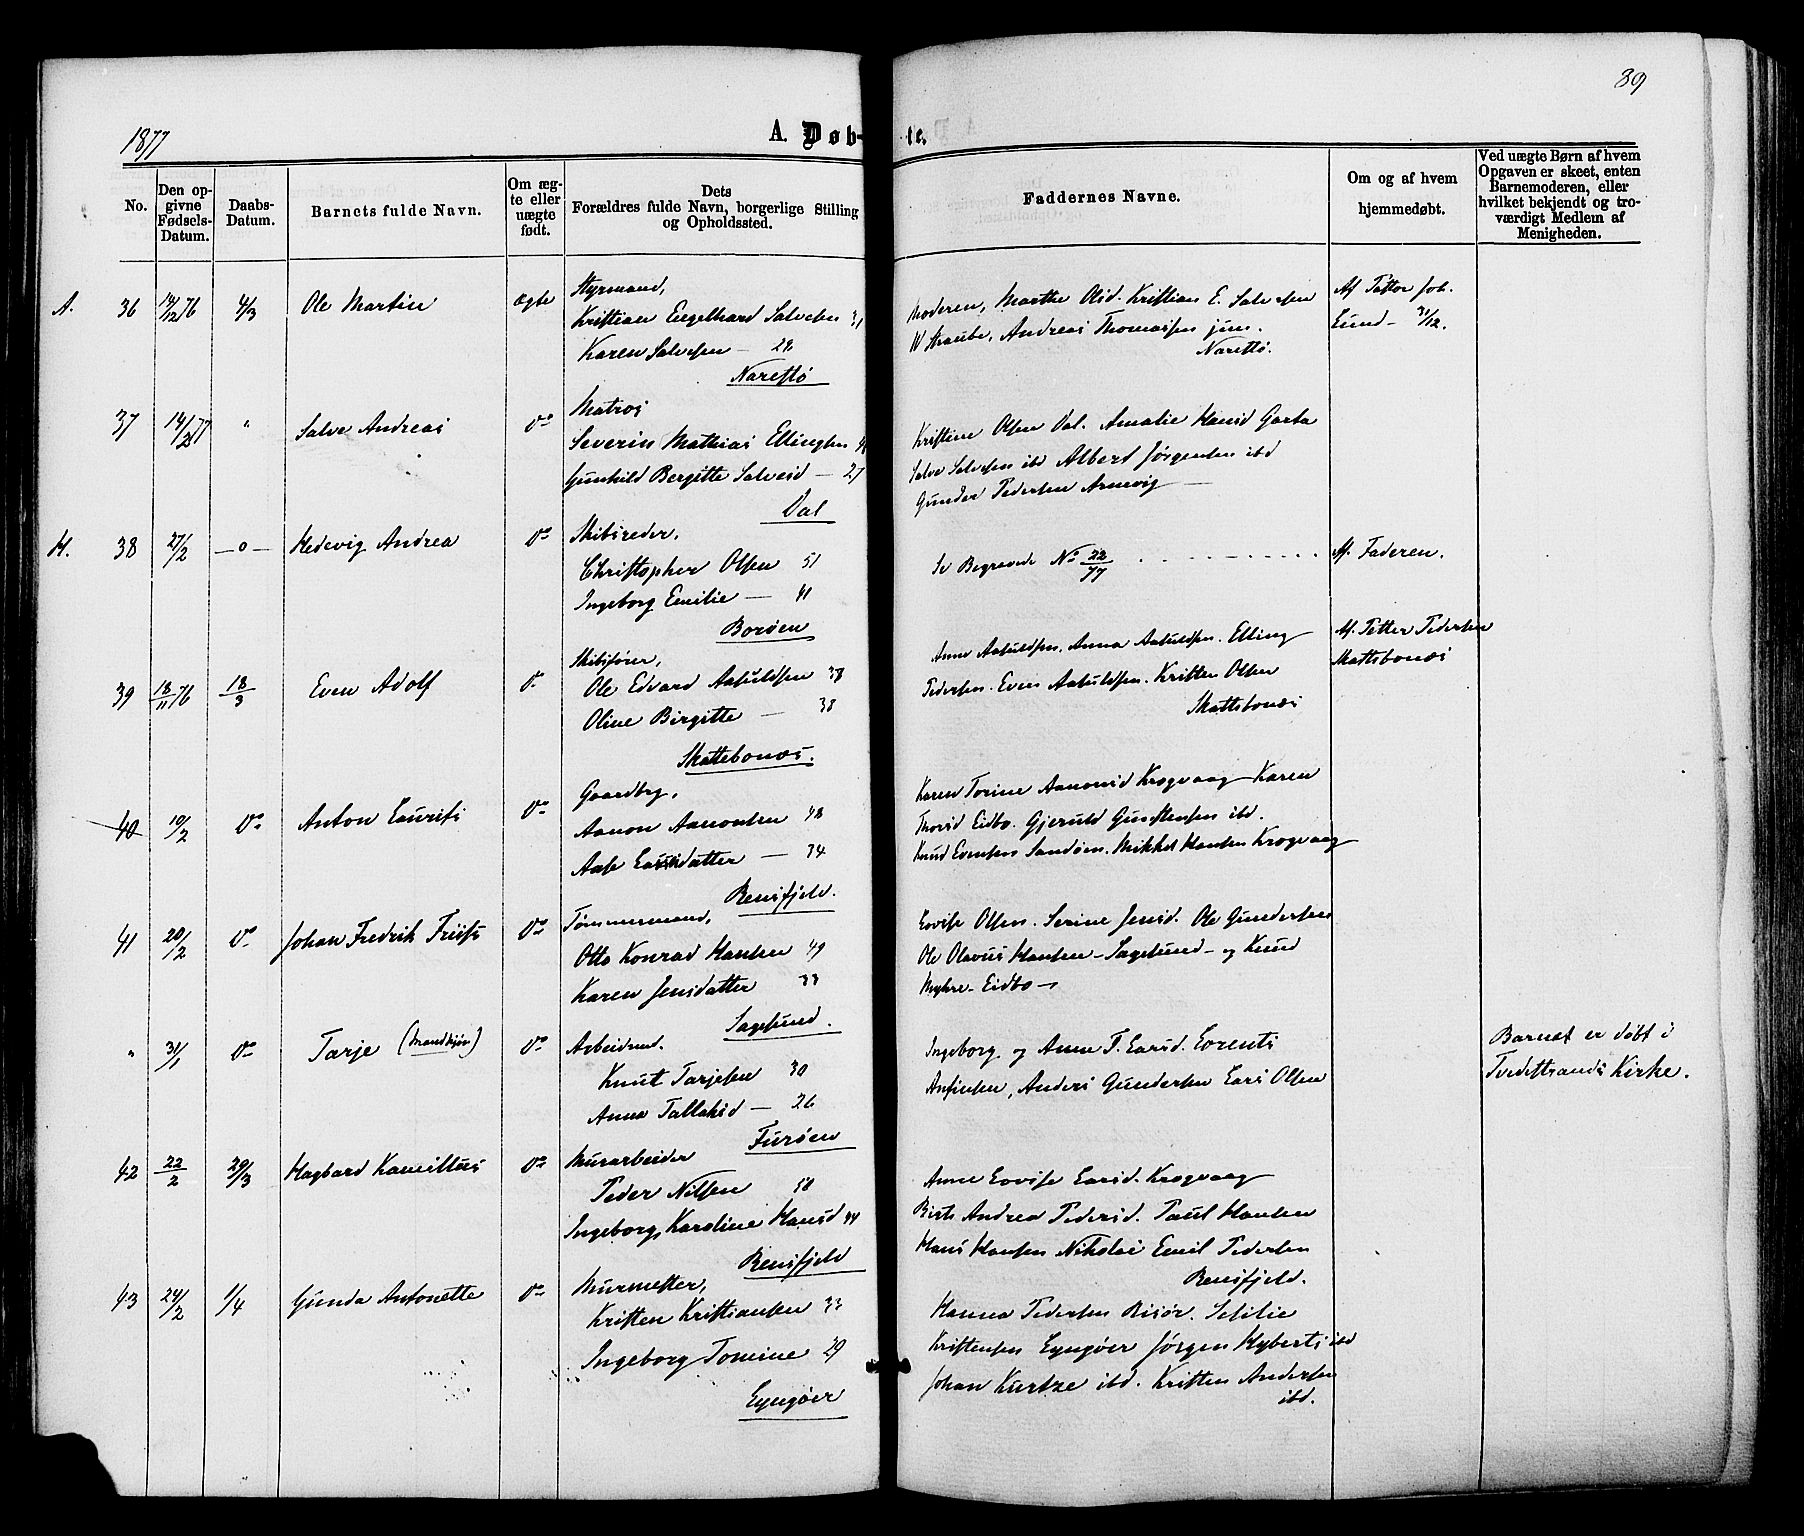 89
1877
A. Døb-
te.
No.
Den op-
givne
Fødsels-
Datum.
Daabs-
Datum.
Barnets fulde Navn.
Om æg-
te eller
uægte
født.
Dets
Forældres fulde Navn, borgerlige Stilling
og Opholdssted.
Faddernes Navne.
Om og af hvem
hjemmedøbt.
Ved uægte Børn af hvem
Opgaven er skeet, enten
Barnemoderen, eller
hvilket bekjendt og tro-
værdigt Medlem af
Menigheden.
A. 36 14/12 76 4/3 Ole Martin ægte Styrmand,
Kristian Engelhard Salvesen 31
Karen Salvesen — 28
Narestø
Moderen, Marthe Olsd. Kristian E. Salvesen
W Straube, Andreas Thomassen jun.
Narestø.
Af Pastor Joh.
Lund — 31/12.
37 14/2 77 " Salve Andreas Do Matros
Severin Mathias Ellingsen
Gunhild Bergitte Salvesd — 27
Dal
Kristine Olsen Dal. Amalie Hansd Garta
Salve Salvesen ibd Albert Jørgensen ibd
Gunder Pedersen Arnevig —
H. 38 27/2 —o— Hedevig Andrea Do Skibsreder,
Christopher Olsen 51
Ingeborg Emilie — 41
Borøen
Se Begravede No 22/77
Af Faderen.
39 18/11 76 18/3 Even Adolf Do Skibsfører,
Ole Edvard Aasuldsen 38
Oline Birgitte — 38
Skattebonæs.
Anne Aasuldsen, Anna Aasuldsen. Elling
Pedersen. Even Aasuldsen. Kristen Olsen
Skattebonæs
Af. Petter Pedersen
Skattebonæs
40 10/2 Do Anton Laurits Do Gaardbr,
Aanon Aanonsen 48
Aase Larsdatter — 34
Rensfjeld.
Karen Torine Aanonsd Krogvaag Karen
Thorsd Eidbo. Gjeruld Gunstensen ibd.
Knud Evensen Sandøen. Mikkel Hansen Krogvaag
41 20/2 Do Johan Fredrik Friis Do Tømmermand,
Otto Konrad Hansen 49
Karen Jensdatter 33
Sagesund.
Lovise Olsen. Serine Jensd. Ole Gundersen
Ole Olavus Hansen — Sagesund — og Knud
Myhre — Eidbo —
" 31/1 Do Tarje (Mandkjøn) Do Arbeidsmd.
Knut Tarjesen 30
Anna Tallaksd — 26
Furøen
Ingeborg og Anne T. Larsd. Lorents
Anfinsen, Anders Gundersen Lars Olsen
Barnet er døbt i
Tvedestrands Kirke.
42 22/2 29/3 Hagbard Kamillus Do Murarbeider
Peder Nilsen 58
Ingeborg Karoline Hansd 44
Rensfjeld
Anne Lovise Larsd. Krogvaag
Andrea Pedersd. Paul Hansen
Hans Hansen Nikolai Emil Pedersen
Rensfjeld.
43 24/2 1/4 Gunda Antonette Do Murmester,
Kristen Kristiansen 33
Ingeborg Tomine 29
Lyngøer
Hanna Pedersen Risør. Sesilie
Kristensen Lyngøer Jørgen Hyberts ibd
Johan Kurtze ibd. Kristen Andersen
ibd.